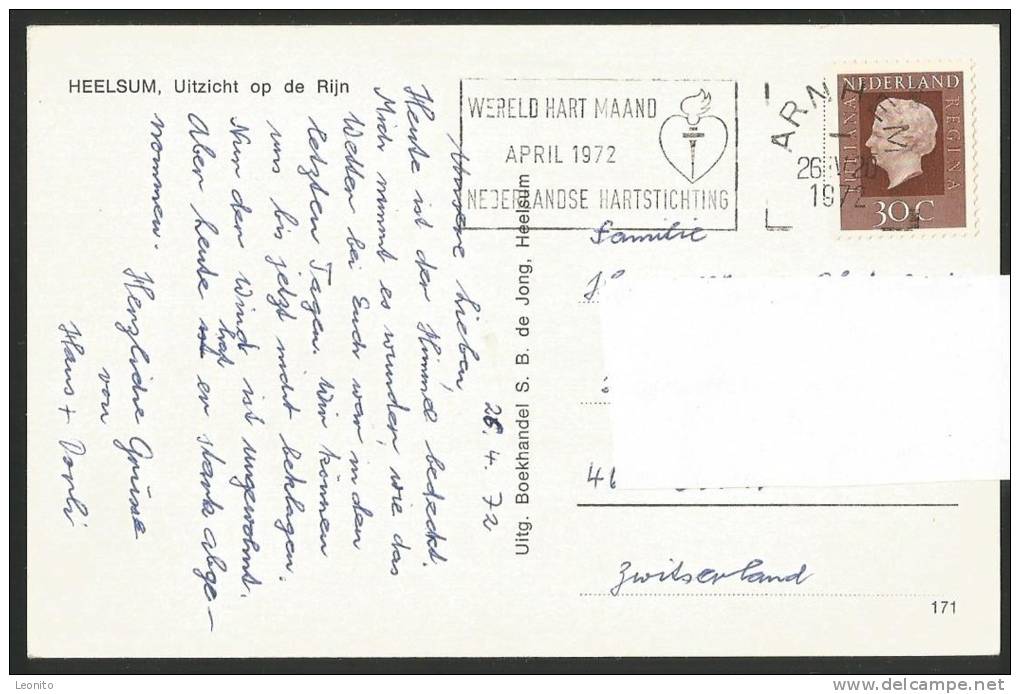 HEELSUM, Uitzicht op de Rijn
WERELD HART MAAND
APRIL 1972
NEDERLANDSE HARTSTICHTING
ARNHEM
26 IV 20
1972
NEDERLAND
JULIANA REGINA
30 C
26. 4. 72
Unsere Lieben,
Heute ist der Himmel bedeckt.
Mich nimmt es wunder, wie das
Wetter bei Euch war in den
letzten Tagen. Wir können
uns bis jetzt nicht beklagen.
Nur der Wind ist ungewohnt.
Aber heute hat er stark abge-
nommen.
Herzliche Grüsse
von
Hans + Dorli
Uitg. Boekhandel S. B. de Jong, Heelsum
Familie
Zwitserland
171
Leonito
delcampe.net